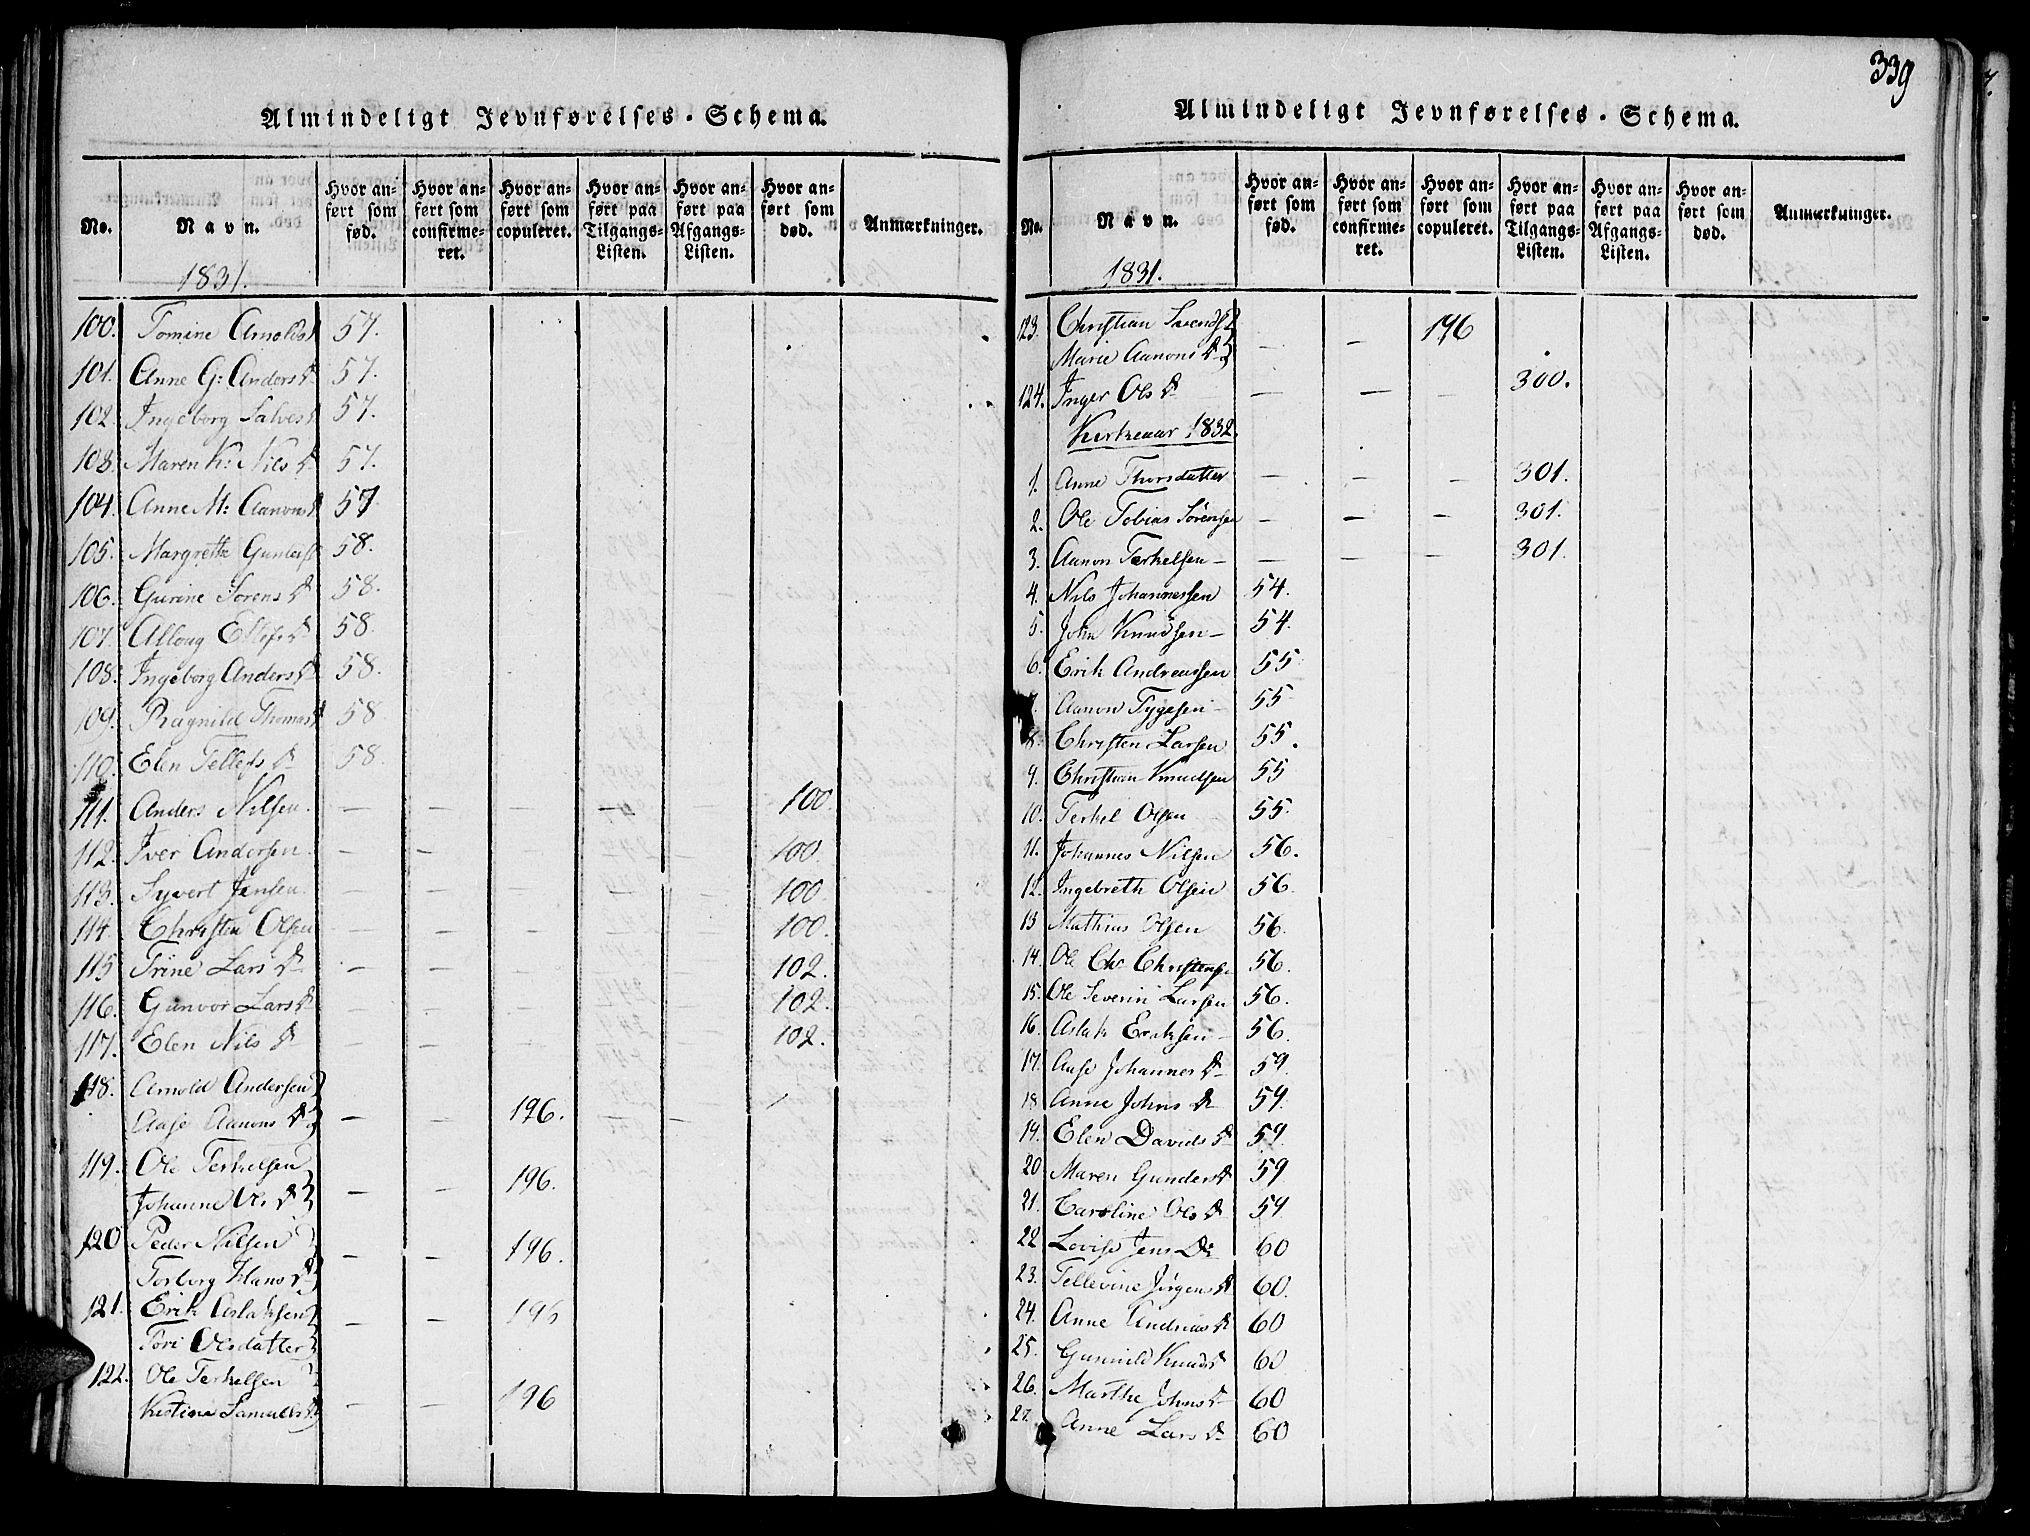 339
Almindeligt Jevnførelses-Schema.
No. Navn. Hvor anført som fød. Hvor anført som confirmeret. Hvor anført som copuleret. Hvor anført paa Tilgangs-Listen. Hvor anført paa Afgangs-Listen. Hvor anført som død. Anmærkninger.
1831.
100. Tomine Arnolds 57.
101. Anne G: Anders D. 57.
102. Ingeborg Salves 57.
103. Maren K: Nils D. 57.
104. Anne M: Aanons 57
105. Margrethe 58.
106. Gurine Sørens D 58.
107. 58.
108. Ingeborg Anders D 58.
109. Ragnild Thomas 58
110. Elen Tellefs D 58.
111. Anders Nilsen — — — — 100.
112. Iver Andersen — — — 100.
113. Syvert Jensen — — — — — 100
114. Christen Olsen — — — — — 100.
115 Trine Lars D — — 102.
116. Gunvor Lars D — — — 102.
117. Elen Nils D — — — 102.
118. Arnold Andersen
Aase Aanons D — — 196. —
119. Ole Terkelsen
Johanne Ols D — — 196.
120 Peder Nilsen
Torborg Hans D — — 196.
121. Erik Aslaksen
Tori Olsdatter — — 196
122. Ole Terkelsen
Kistine Samuels D — — 196
Almindeligt Jevnførelses-Schema.
No. Navn. Hvor anført som fød. Hvor anført som confirmeret. Hvor anført som copuleret. Hvor anført paa Tilgangs-Listen. Hvor anført paa Afgangs-Listen. Hvor anført som død. Anmærkninger.
1831.
123. Christian Svends
Marie Aanons D — — 196
124. Inger Ols D — — — 300.
Kirkeaar 1832.
1. Anne Thorsdatter — — — 301.
2. Ole Tobias Sørensen — — — 301.
3. Aanon Terkelsen — — — — 301.
4. Nils Johannessen 54.
5. John Knudsen — 54.
6. Erik Andreassen 55
7. Aanon Tygesen — 55
8. Christen Larsen 55.
9. Christian Knudsen 55
10. Terkel Olsen 55.
11. Johannes Nilsen 56.
12. Ingebreth Olsen 56.
13 Mathias Olsen 56.
14. Ole Chr Christens 56.
15. Ole Severin Larsen 56.
16. Aslak Eriksen — 56.
17. Aase Johannes D 59.
18 Anne Johns D 59.
19. Elen Davids D 59.
20 Maren Gunders D 59
21. Caroline Ols D 59
22 Lovise Jens D 60
23. Tellevine Jørgens D 60.
24. Anne Andreas D 60
25. Gunnild Knuds D 60
26. Marthe Johns D 60
27. Anne Lars D 60